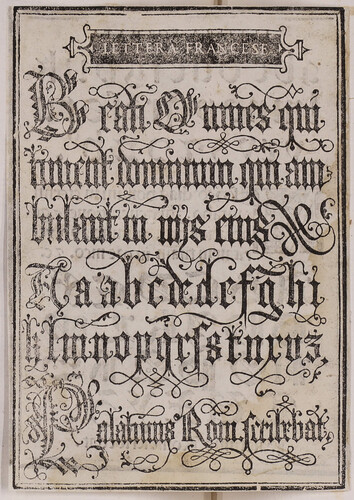 LETTERA FRANCESE
Beati Omnes qui
timent dominum qui am-
bulant in vijs eius
A a a b c d e d e f g h i
k l m n o p q r s s t u x v z.
Palatinus Rom. scribebat,